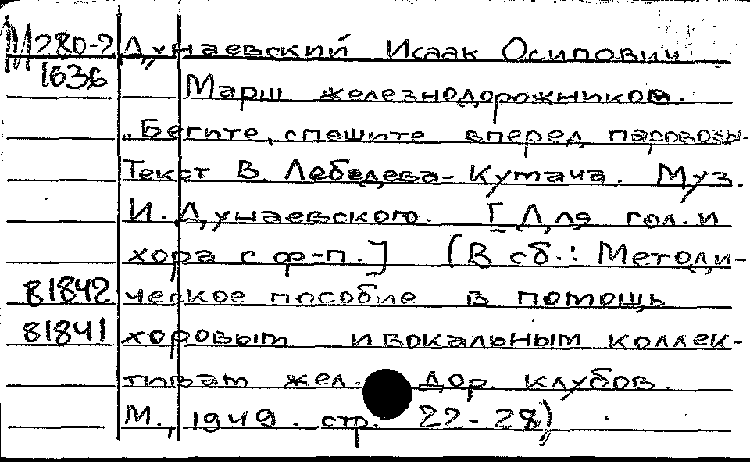 М280-2 Дунаевский Исаак Осипович
1636 Марш железнодорожников.
„Бегите, спешите вперед паровозы-
Текст В. Лебедева-Кумача. Муз.
И. Дунаевского. [Для гол. и
хора с ф-п.] (В сб.: Методи-
81842 ческое пособие в помощь
81841 хоровым и вокальным коллек-
тивам жел. дор. клубов.
М., 1949. стр. 22-28)